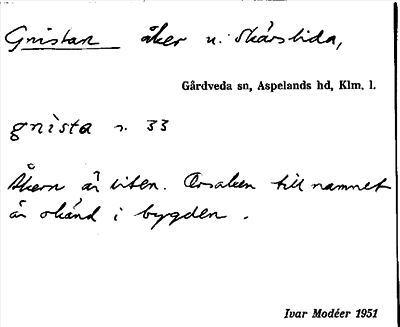 Gnistan åker u. Skärslida,
Gårdveda sn, Aspelands hd, Klm. l.
gnista n. 33
Åkern är liten. Orsaken till namnet
är okänd i bygden.
Ivar Modéer 1951